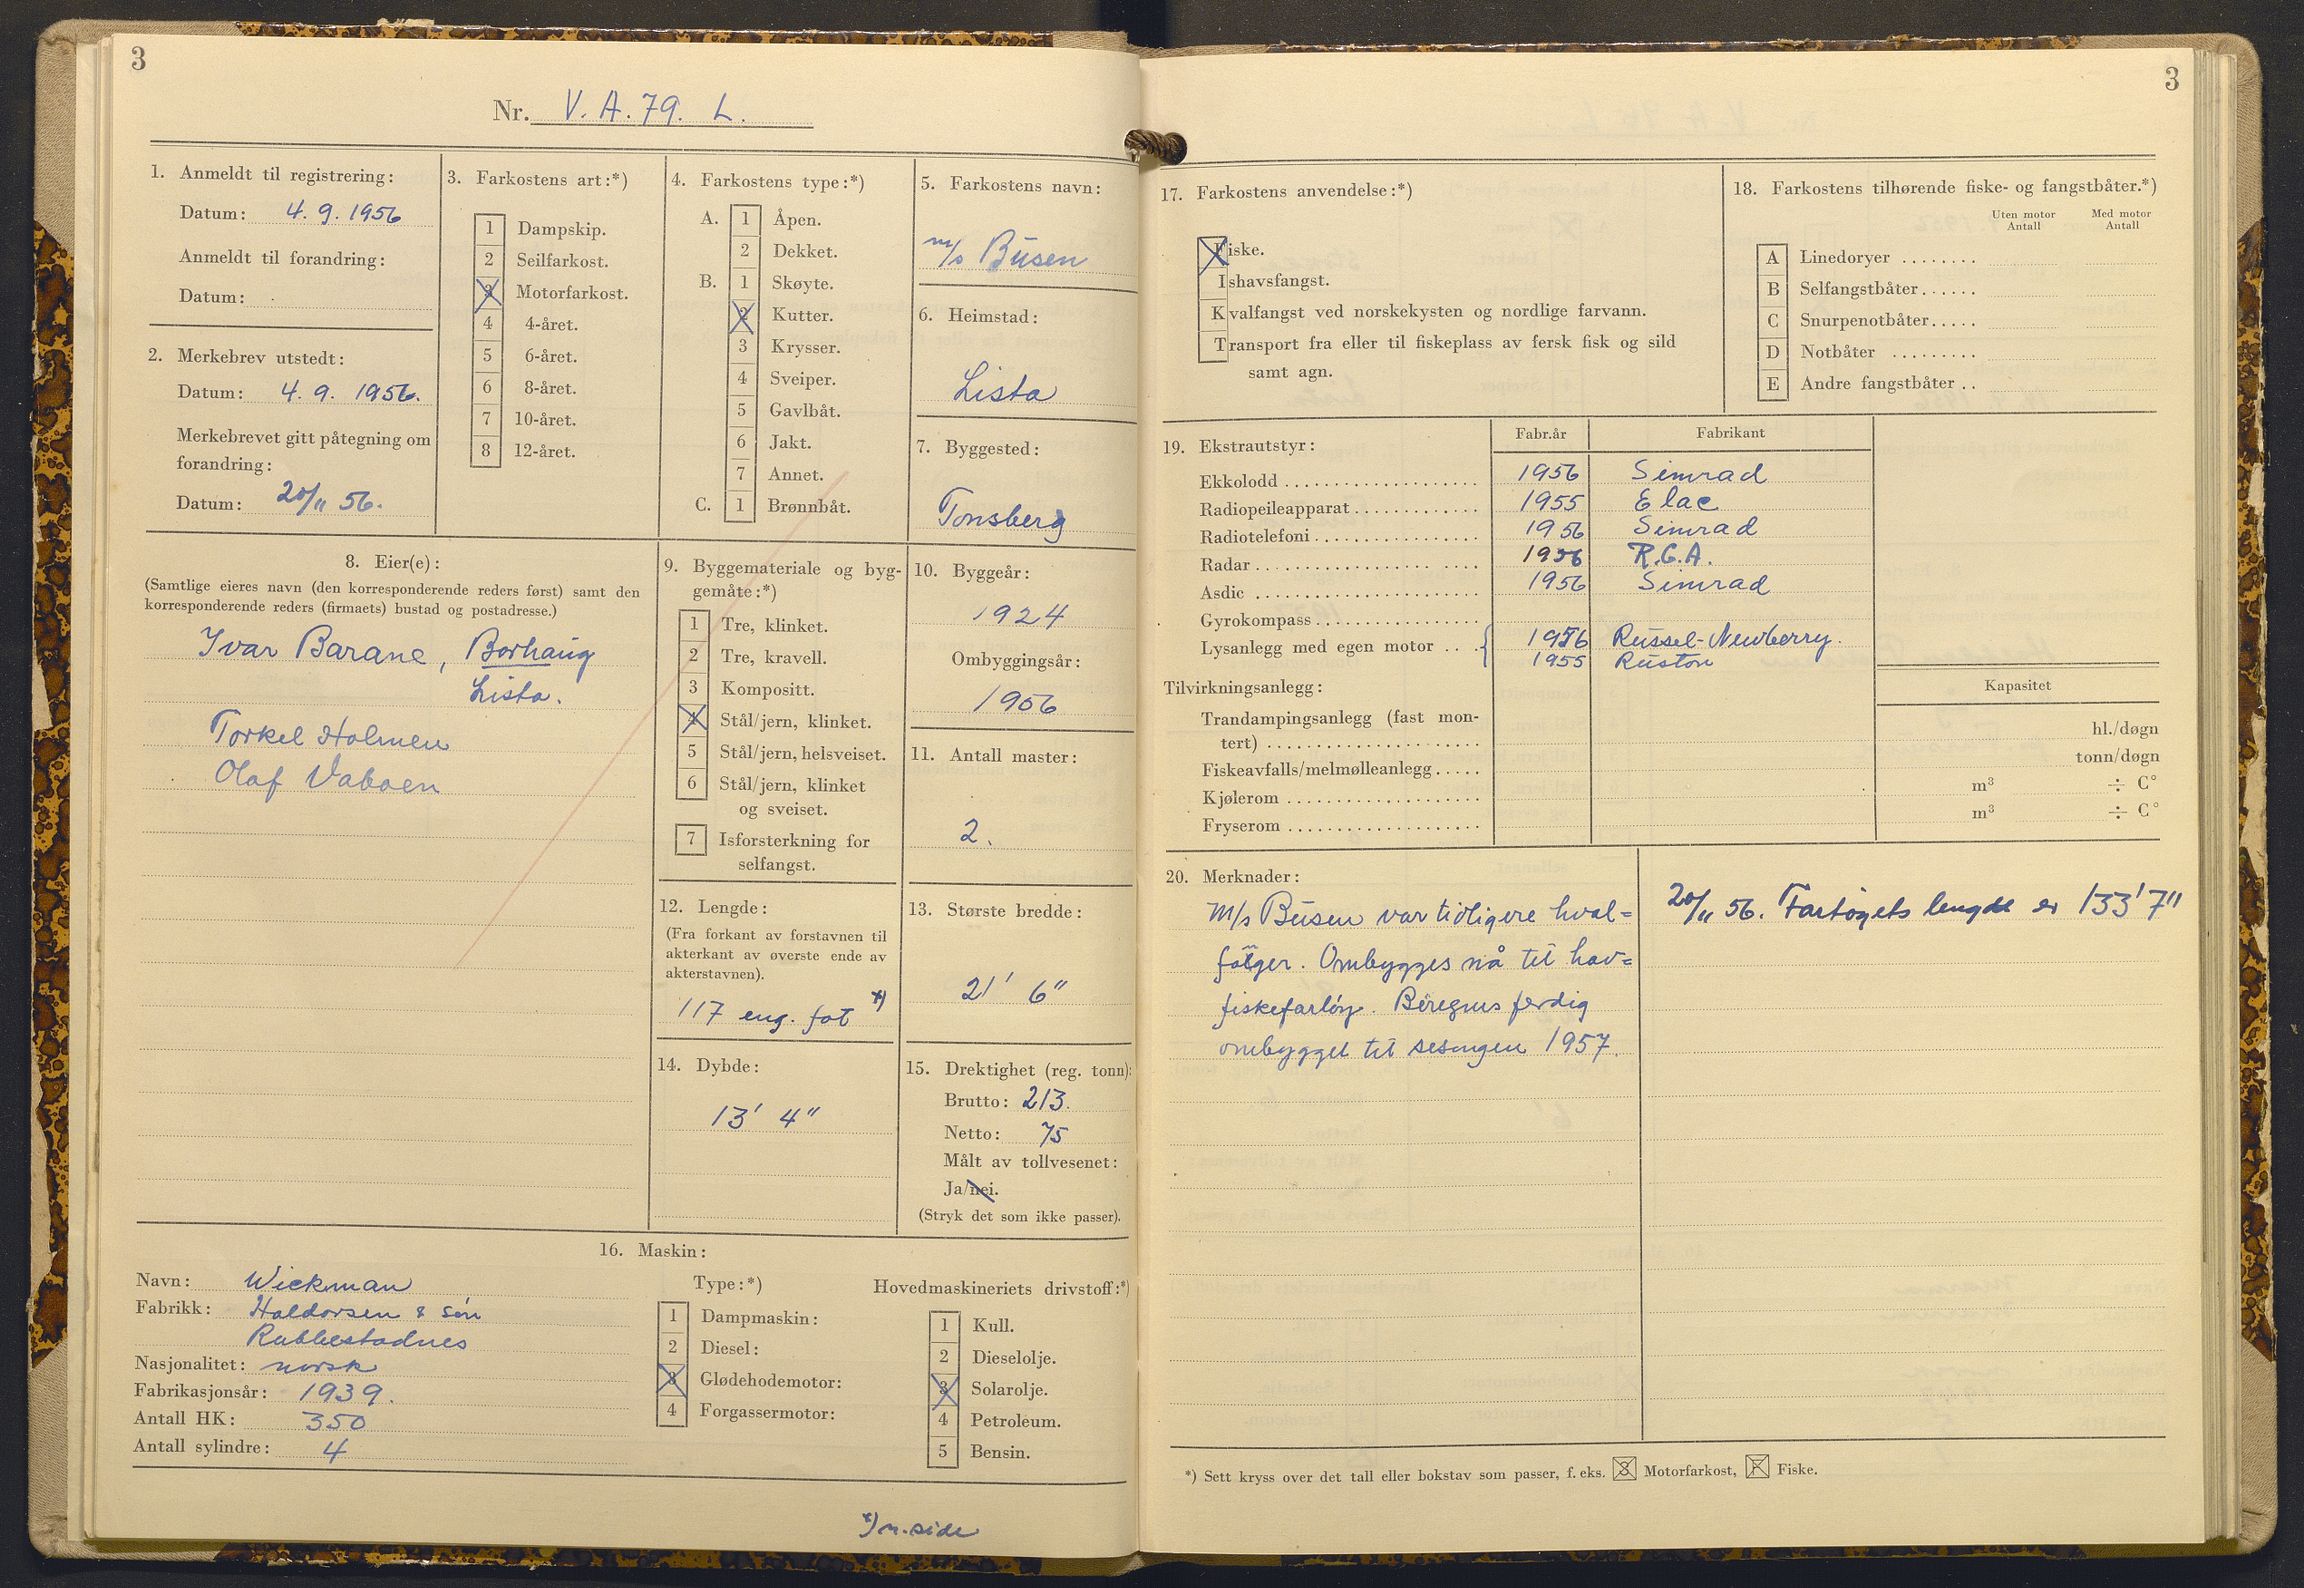 3
Nr. V. A. 79. L.
1. Anmeldt til registrering:
Datum: 4. 9. 1956
Anmeldt til forandring:
Datum:
2. Merkebrev utstedt:
Datum: 4. 9. 1956.
Merkebrevet gitt påtegning om
forandring:
Datum: 20/11 56.
3. Farkostens art:*)
1 Dampskip.
2 Seilfarkost.
3 Motorfarkost.
4 4-året.
5 6-året.
6 8-året.
7 10-året.
8 12-året.
4. Farkostens type:*)
A. 1 Åpen.
2 Dekket.
B. 1 Skøyte.
2 Kutter.
3 Krysser.
4 Sveiper.
5 Gavlbåt.
6 Jakt.
7 Annet.
C. 1 Brønnbåt.
5. Farkostens navn:
m/s Busen
6. Heimstad:
Lista
7. Byggested:
Tonsberg
8. Eier(e):
(Samtlige eieres navn (den korresponderende reders først) samt den
korresponderende reders (firmaets) bustad og postadresse.)
Ivar Barane, Borhaug
Lista.
Torkel Holmen
Olaf Vaboen
9. Byggemateriale og byg-
gemåte:*)
1 Tre, klinket.
2 Tre, kravell.
3 Kompositt.
4 Stål/jern, klinket.
5 Stål/jern, helsveiset.
6 Stål/jern, klinket
og sveiset.
7 Isforsterkning for
selfangst.
10. Byggeår:
1924
Ombyggingsår:
1956
11. Antall master:
2.
12. Lengde:
(Fra forkant av forstavnen til
akterkant av øverste ende av
akterstavnen).
117 eng. fot *)
13. Største bredde:
21' 6"
14. Dybde:
13' 4"
15. Drektighet (reg. tonn):
Brutto: 213.
Netto: 75
Målt av tollvesenet:
Ja/nei.
(Stryk det som ikke passer).
16. Maskin:
Navn: Wickman
Fabrikk: Haldorsen & Søn
Rubbestadnes
Nasjonalitet: norsk
Fabrikasjonsår: 1939.
Antall HK: 350
Antall sylindre: 4
Type:*)
1 Dampmaskin:
2 Diesel:
3 Glødehodemotor:
4 Forgassermotor:
Hovedmaskineriets drivstoff:*)
1 Kull.
2 Dieselolje.
3 Solarolje.
4 Petroleum.
5 Bensin.
*) n. side
3
17. Farkostens anvendelse:*)
Fiske.
Ishavsfangst.
Kvalfangst ved norskekysten og nordlige farvann.
Transport fra eller til fiskeplass av fersk fisk og sild
samt agn.
18. Farkostens tilhørende fiske- og fangstbåter.*)
Uten motor Med motor
Antall Antall
A Linedoryer ........
B Selfangstbåter......
C Snurpenotbåter.....
D Notbåter .........
E Andre fangstbåter ..
19. Ekstrautstyr: Fabr.år Fabrikant
Ekkolodd 1956 Simrad
Radiopeileapparat 1955 Elac
Radiotelefoni 1956 Simrad
Radar 1956 R.C.A.
Asdic 1956 Simrad
Gyrokompass
Lysanlegg med egen motor .. { 1956 Russel-Newberry.
1955 Ruston
Tilvirkningsanlegg: Kapasitet
Trandampingsanlegg (fast mon-
tert) hl./døgn
Fiskeavfalls/melmølleanlegg..... tonn/døgn
Kjølerom m³ ÷ C°
Fryserom m³ ÷ C°
20. Merknader:
M/s Busen var tidligere hval=
fanger. Ombygges nå til hav=
fiskefartøy. Beregnes ferdig
ombygget til sesongen 1957.
20/11 56. Fartøgets lengde er 133' 7"
*) Sett kryss over det tall eller bokstav som passer, f. eks. 3 Motorfarkost, F Fiske.